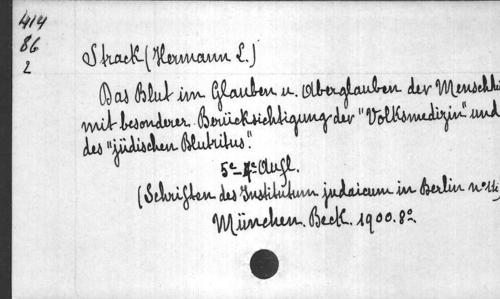 414
86
2
Strack (Hermann L.)
Das Blut im Glauben u. Aberglauben der Menschhei
mit besonderer Berücksichtigung der "Volksmedizin" und
des "jüdischen Blutritus."
5e-7e Aufl.
(Schriften des Institutum judaicum in Berlin no 14)
München. Beck. 1900. 8o